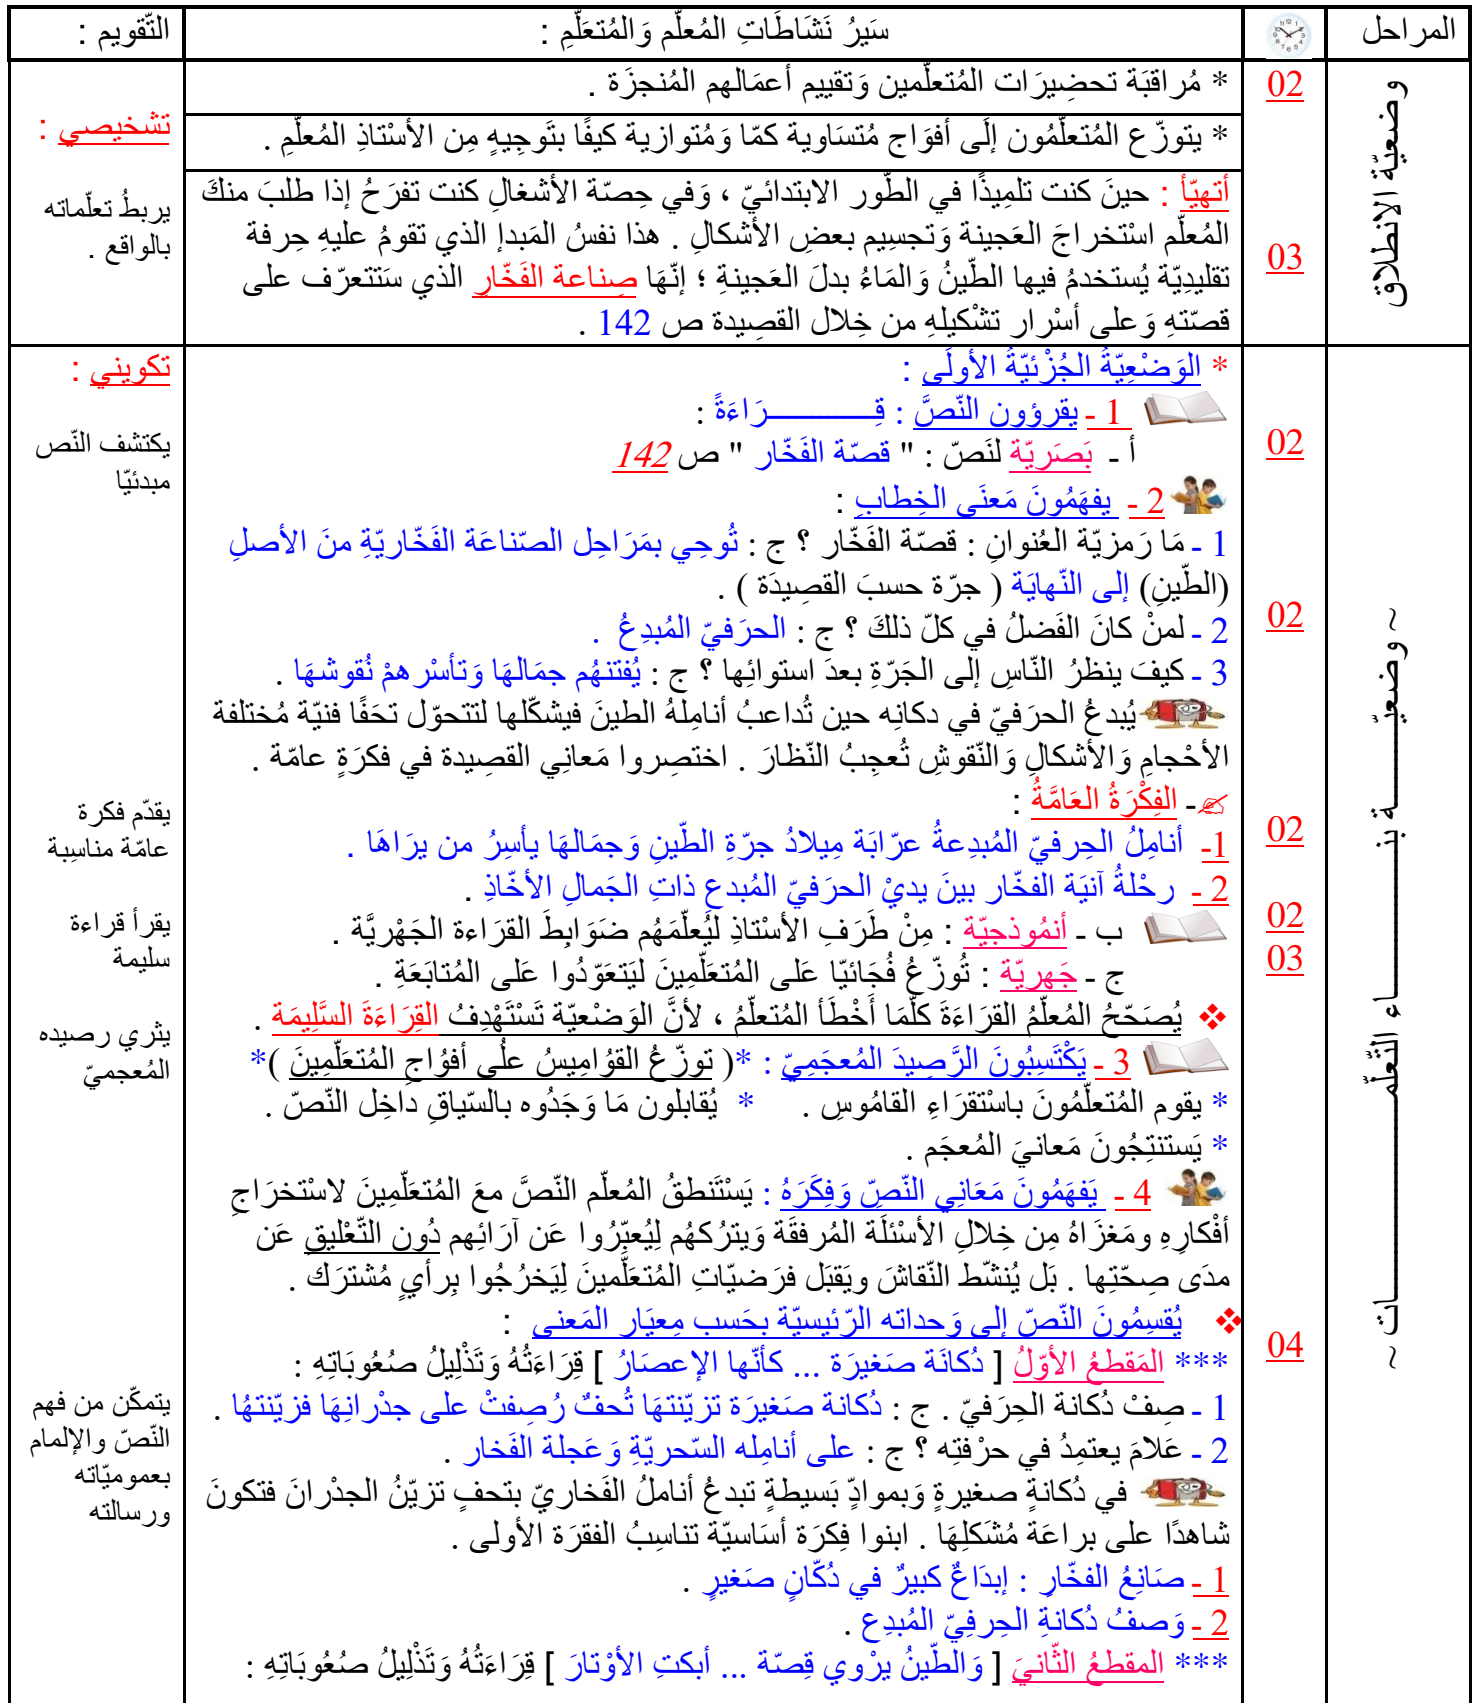 المراحل
سَيرُ نَشَاطَاتِ المُعلّم وَالمُتعَلّمِ :
التّقويم :
وضعيّة الانطلاق
02
* مُراقبَة تحضِيرَات المُتعلّمين وَتقييم أعمَالهم المُنجزَة .
* يتوزّع المُتعلّمُون إلَى أفوَاج مُتسَاوية كمّا وَمُتوازية كيفًا بتَوجِيهٍ مِن الأسْتاذِ المُعلّمِ .
03
أتهيّأ : حينَ كنت تلمِيذًا في الطّور الابتدائيّ ، وَفي حِصّة الأشغالِ كنت تفرَحُ إذا طلبَ منكَ
المُعلّم اسْتخراجَ العَجينة وَتجسِيم بعضِ الأشكالِ . هذا نفسُ المَبدإ الذي تقومُ عليهِ حِرفة
تقليدِيّة يُستخدمُ فيها الطّينُ وَالمَاءُ بدلَ العَجينةِ ؛ إنّهَا صِناعة الفَخّارِ الذي سَتتعرّف على
قصّتهِ وَعلى أسْرار تشْكيلهِ من خِلال القصِيدة ص 142 .
تشخيصي :
يربطُ تعلّماته
بالواقع .
~ وضعيّــــــة بنــــــــاء التّعلّمــــــــات ~
* الوَضْعِيّةُ الجُزْئيّةُ الأولَى :
1 ـ يقرؤون النّصَّ : قِــــــــرَاءَةً :
02
أ ـ بَصَريّة لنَصّ : " قصّة الفَخّار " ص 142
2 ـ يفهَمُونَ مَعنَى الخِطابِ :
1 ـ مَا رَمزيّة العُنوانِ : قصّة الفَخّار ؟ ج : تُوحِي بمَرَاحِل الصّناعَة الفَخّاريّةِ منَ الأصلِ
(الطّينِ) إلى النّهايَة ( جرّة حسبَ القصِيدَة ) .
02
2 ـ لمنْ كانَ الفَضلُ في كلّ ذلكَ ؟ ج : الحرَفيّ المُبدِعُ .
3 ـ كيفَ ينظرُ النّاسِ إلى الجَرّةِ بعدَ استوائِها ؟ ج : يُفتنهُم جمَالهَا وَتأسْرهمْ نُقوشهَا .
يُبدعُ الحرَفيّ في دكانِه حين تُداعبُ أنامِلهُ الطينَ فيشكّلها لتتحوّل تحَفًا فنيّة مُختلفة
الأحْجامِ وَالأشكالِ وَالنّقوشِ تُعجِبُ النّظارَ . اختصِروا مَعانِي القصِيدة في فكرَةٍ عامّة .
ـ الفِكْرَةُ العَامَّةُ :
02
1ـ أنامِلُ الحِرفيّ المُبدِعةُ عرّابَة مِيلادُ جرّةِ الطّينِ وَجمَالهَا يأسِرُ من يرَاهَا .
2 ـ رحْلةُ آنيَة الفخّار بينَ يديْ الحرَفيّ المُبدعِ ذاتِ الجَمالِ الأخّاذِ .
02
ب ـ أنمُوذجيّة : مِنْ طَرَفِ الأسْتاذِ ليُعلّمَهُم ضَوَابِطَ القرَاءة الجَهْريَّة .
03
ج ـ جَهريّة : تُوزّعُ فُجَائيّا عَلى المُتعَلّمِينَ ليَتعَوّدُوا عَلى المُتابَعَةِ .
❖ يُصَحّحُ المُعلّمُ القرَاءَةَ كلّمَا أخْطَأ المُتعلّمُ ، لأنَّ الوَضْعيّة تَسْتَهْدِفُ القِرَاءَةَ السَّلِيمَة .
3 ـ يَكْتَسِبُونَ الرَّصِيدَ المُعجَمِيّ : *( توزّعُ القوُامِيسُ علُى أفوُاجِ المُتعَلّمِينَ )*
* يقوم المُتعلّمُونَ باسْتقرَاءِ القامُوسِ . * يُقابلون مَا وَجَدُوه بالسّياقِ داخِل النّصّ .
* يَستنتِجُونَ مَعانيَ المُعجَم .
4 ـ يَفهَمُونَ مَعَانِي النّصِّ وَفِكَرَهُ : يَسْتَنطقُ المُعلّم النّصَّ معَ المُتعَلّمِينَ لاسْتخرَاجِ
أفْكارِهِ ومَغزَاهُ مِن خِلالِ الأسْئلَة المُرفقَة وَيترُكهُم لِيُعبِّرُوا عَن آرَائِهم دُون التّعْليقِ عَن
مدَى صِحّتِها . بَل يُنشّط النّقاشَ ويَقبَل فرَضيّاتِ المُتعَلّمينَ لِيَخرُجُوا بِرأيٍ مُشترَك .
❖ يُقسِمُونَ النّصّ إلى وَحداته الرّئيسيّة بحَسب مِعيَار المَعنى :
04
*** المَقطعُ الأوّلُ [ دُكانَة صَغيرَة ... كأنّها الإعصَارُ ] قِرَاءَتُهُ وَتَذْلِيلُ صُعُوبَاتِهِ :
1 ـ صِفْ دُكانة الحِرَفيّ . ج : دُكانة صَغيرَة تزيّنتهَا تُحفٌ رُصِفتْ على جدْرانِهَا فزيّنتهُا .
2 ـ عَلامَ يعتمِدُ في حرْفتِه ؟ ج : على أنامِله السّحريّةِ وَعَجلة الفَخار .
في دُكانةٍ صغيرةٍ وَبموادٍّ بَسيطةٍ تبدعُ أناملُ الفَخاريّ بتحفٍ تزيّنُ الجدْرانَ فتكونَ
شاهدًا على براعَة مُشَكلِهَا . ابنوا فِكرَة أسَاسيّة تناسِبُ الفقرَة الأولى .
1 ـ صَانِعُ الفخّارِ : إبدَاعٌ كبيرٌ في دُكّانٍ صَغيرٍ .
2 ـ وَصفُ دُكانةِ الحِرفِيّ المُبدِع .
*** المقطعُ الثّانيَ [ وَالطّينُ يرْوي قِصّة ... أبكتِ الأوْتارَ ] قِرَاءَتُهُ وَتَذْلِيلُ صُعُوبَاتِهِ :
تكويني :
يكتشف النّص
مبدئيّا
يقدّم فكرة
عامّة مناسِبة
يقرأ قراءة
سليمة
يثري رصيده
المُعجميّ
يتمكّن من فهم
النّصّ والإلمام
بعموميّاته
ورسالته